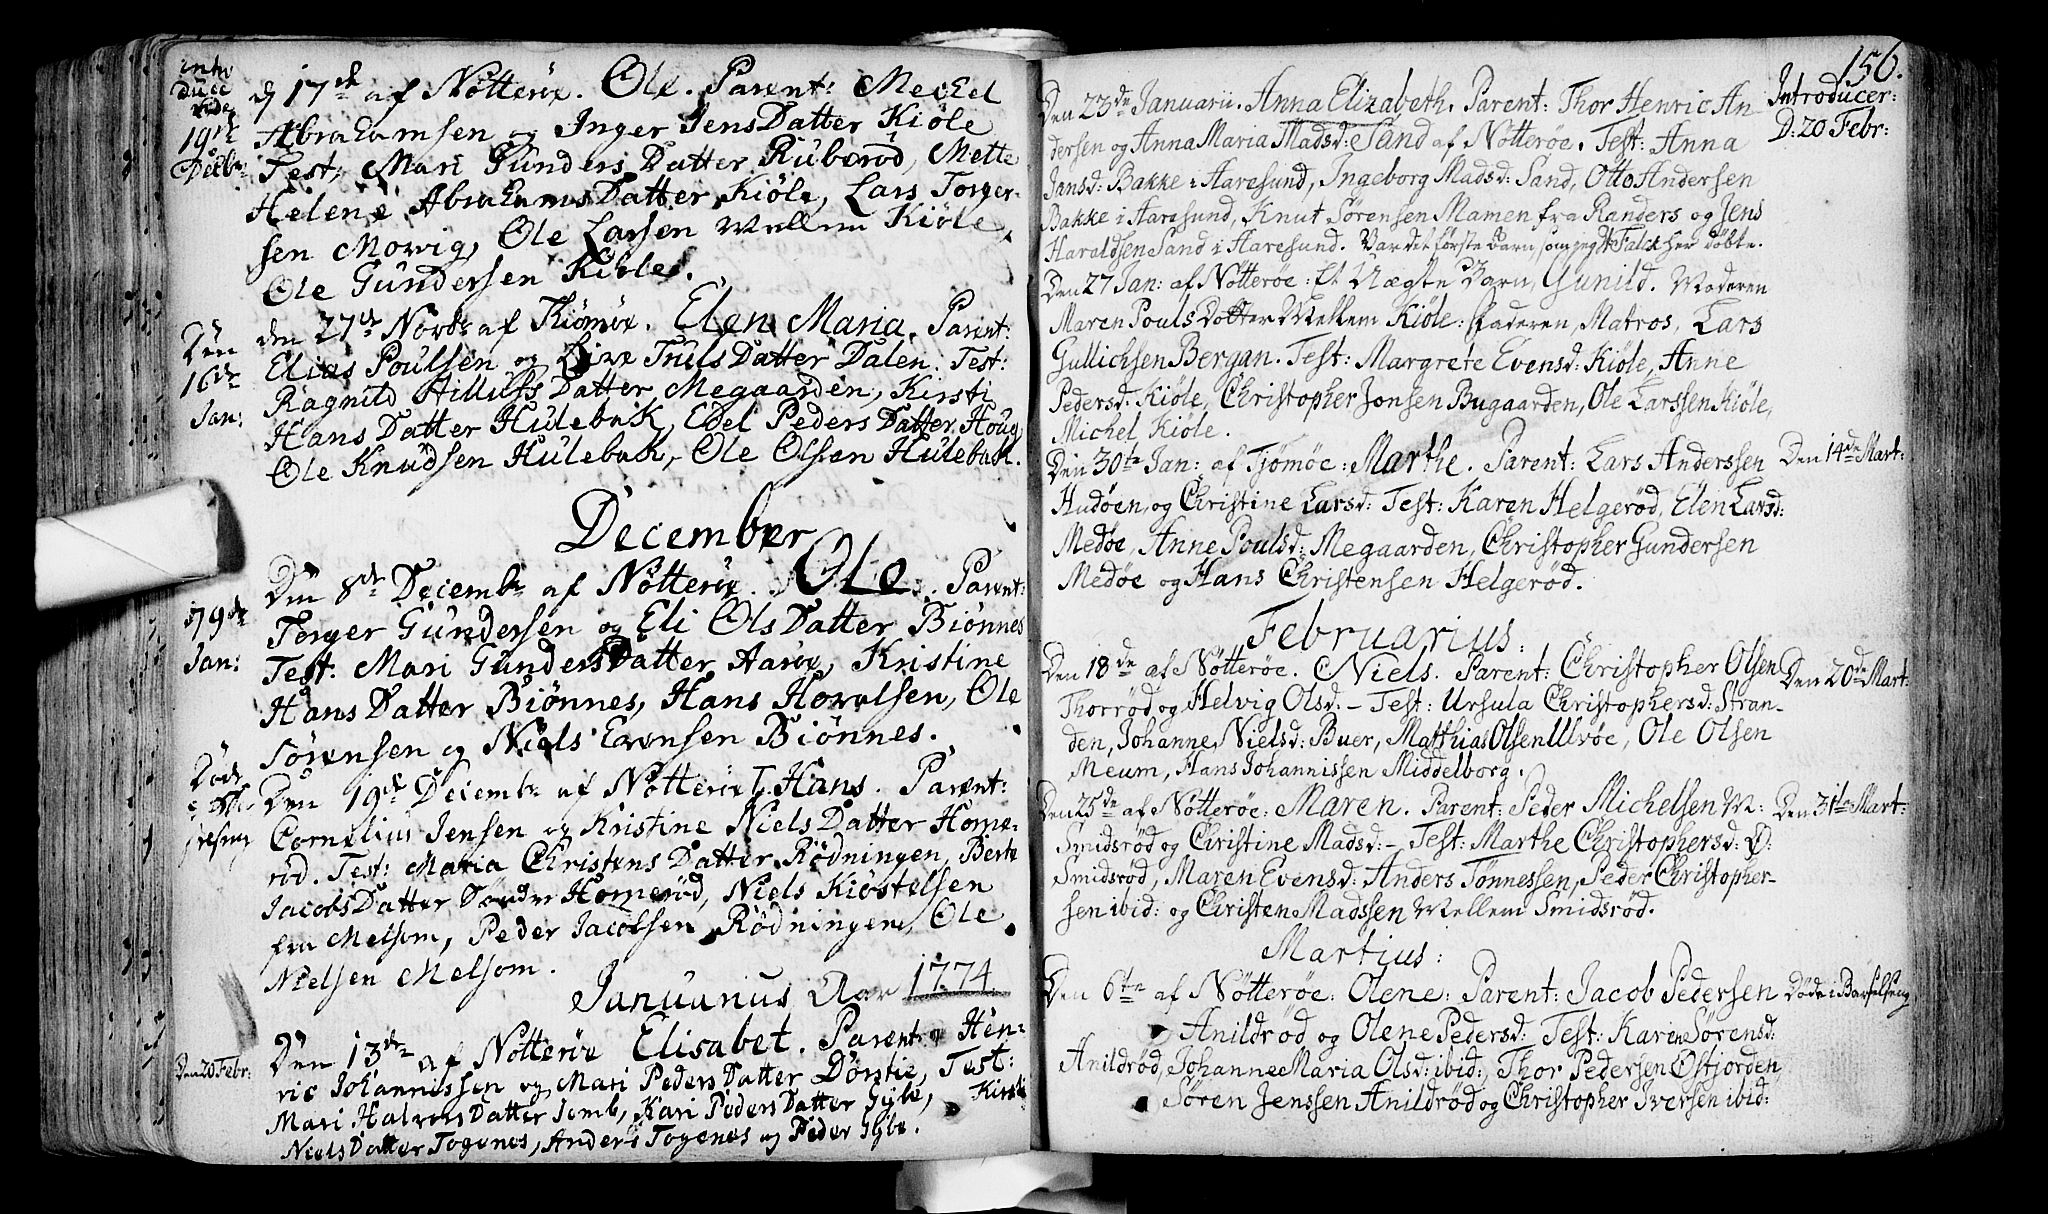 intro
ducc
vide
19de
Decbr:
d 17de af Nötteröe. Ole. Parent: Mechel
Abrahamsen og Inger JensDatter Kiöle
Test, Mari Gunders Datter Ruberöd, Mette
Helene AbrahamsDatter Kiöle, Lars Torger-
sen Mowig, Ole Larsen Mellem Kiöle,
Ole Gundersen Kiöle.
Den
16de
Jan:
den 27de Novbr af Tiömöe. Elen Maria. Parent:
Elias Poulsen og Live TrulsDatter Dalen. Test:
Ragnild HillufsDatter, Megaarden, Kirsti
Hans Datter Hulebak, Edel Peders Datter Houg
Ole Knudsen Hulebak, Ole Olsen Hulebak.
December
19de
Jan:
Den 8de Decembr af Nötteröe. Ole. Parent:
Torger Gundersen og Eli OlsDatter Biönnes
Test: Mari GundersDatter Aaröe, Kristine
Hans Datter Biönnes, Hans Horulsen, Ole
Sörensen og Niels Evensen Biönnes.
Döde
Den 19de Decembr af Nötteröe Hans. Parent:
Cornelius Jensen og Kristine NielsDatter Home-
röd. Test: Maria Christens Datter Rödningen, Berte
JacobsDatter Söndre Homeröd, Niels Kiöstelsen
fra Melsom, Peder Jacobsen Rödningen, Ole
Nielsen Melsom.
Januarius Aar 1774.
Den 20 Febr:
Den 13de af Nötteröe Elisabet. Parent: Hen-
ric Johannissen og Mari PedersDatter Dörstie, Test:
Mari HalvorsDatter Jomb, Kari PedersDatter Gybe, Kirsti
NielsDatter Togenes, Anders Togenes og Peder Gybe.
156.
Den 23de Januarii. Anna Elizabeth. Parent: Thor Henric An
dersen og Anna Maria Madsd: Sand af Nötteröe. Test: Anna
Jansd: Bakke i Aaresund, Ingeborg Madsd: Sand, Otto Andersen
Bakke i Aaresund, Knut Sörensen Mamen fra Randers og Jens
Haraldsen Sand i Aaresund. Var det förste Barn, som jeg Falck her döbte.
Introducer:
D: 20 Febr:
Den 27 Jan: af Nötteröe: Et Uægte Barn, Gunild. Moderen
Maren Pouls Dotter Mellem Kiöle: Faderen, Matros, Lars
Gullichsen Bergan. Test: Margrete Evensd: Kiöle, Anne
Pedersd: Kiöle, Christopher Jonsen Bugaarden, Ole Larssen Kiöle,
Michel Kiöle.
Den 30te Jan: af Tjömöe: Marthe. Parent: Lars Anderssen
Hudöen, og Christine Larsd: Test: Karen Helgeröd, Elen Larsd:
Medöe, Anne Poulsd: Megaarden, Christopher Gundersen
Medöe og Hans Christensen Helgeröd.
Den 14de Mart:
Februarius:
Den 18de af Nötteröe. Niels. Parent: Christopher Olsen
Thorröd og Helvig Olsd: – Test: Ursula Christophersd: Stran-
den, Johanne Nielsd: Buer, Matthias Olsen Ulvöe, Ole Olsen
Meum, Hans Johannissen Middelborg.
Den 20de Mart.
Den 25de af Nötteröe: Maren. Parent: Peder Michelsen M:
Smidsröd og Christine Madsd: – Test: Marthe Christophersd: Ö:
Smidsröd, Maren Evensd: Anders Tönnessen, Peder Christopher-
sen ibid: og Christen Madssen Mellem Smidsröd.
Den 31te Mart:
Martius:
Den 6te af Nötteröe: Olene: Parent: Jacob Pedersen
Anildröd og Olene Pedersd: Test: Karen Sörensd:
Anildröd, Johanne Maria Olsd: ibid:, Thor Pedersen Östjorden,
Sören Jenssen Anildröd og Christopher Iversen ibid:
Döde i Barselseng